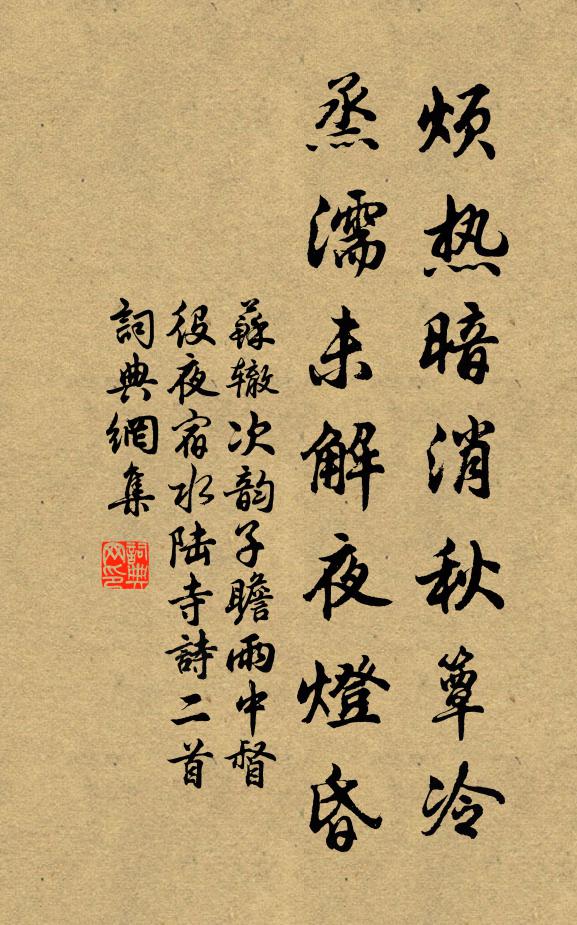 烦热暗消秋簟冷
蒸濡未解夜燈昏
蘇辙次韵子瞻雨中督
役夜宿水陆寺詩二首
詞典網集
詞典网印